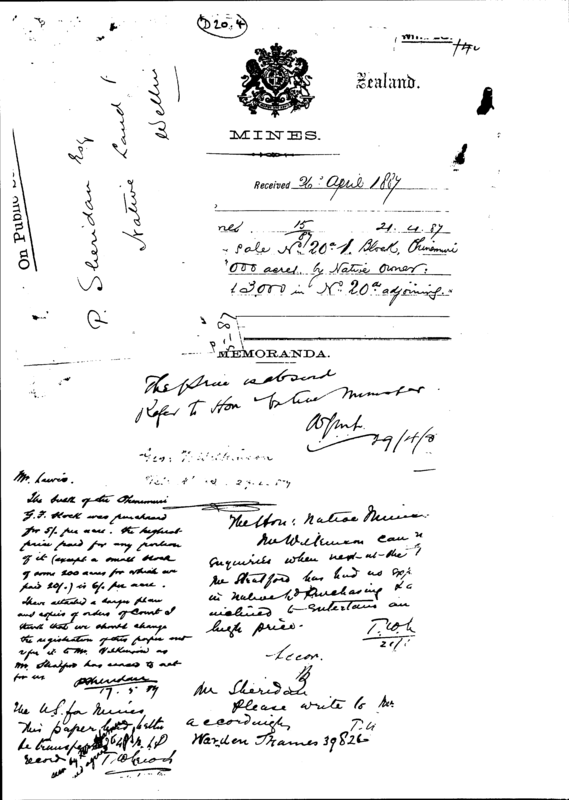 D20.4
Zealand.
MINES.
On Public
P. Sheridan Esq
Native Land
Received 26 April 1887
15/87 21.4.87
Sale No 20a Block, Ohinemuri
000 acres by Native Owner:
13,000 in No 20a adjoining.
MEMORANDA.
The price is absurd
Refer to Hon Native Minister
29/4/8
Geo. T. Wilkinson
Mr. Lewis.
The bulk of the Ohinemuri
G.F. Block was purchased
for 5/- per acre. The highest
price paid for any portion
of it (except a small block
of some 200 acres for which we
paid 20/-) is 6/- per acre.
I have attached a large plan
and copies of orders of Court I
think that we should change
the registration of this paper and
refer it to Mr. Wilkinson as
Mr. Stratford has ceased to act
for us
P Sheridan
17.5.87
The Hon: Native Minis
Mr Wilkinson can
enquiries when next at the
Mr Stratford has had no exp
in Native Ld Purchasing &
inclined to entertain an
high price.
T.W.L
The U.S. for Mines,
This paper had better
be transfer
record
T. W. Lewis
Mr Sheridan
Please write to Mr
accordingly
Warden Thames 39826